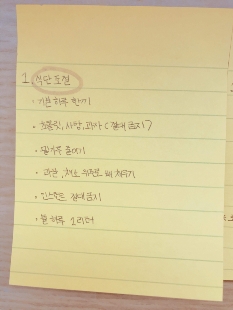 1. 식단 조절
· 기본 하루 한끼
· 초콜릿, 사탕, 과자 (절대 금지)
· 줄이기
· 과일, 채소 위주로 배 채우기
· 인스턴트 절대 금지
· 물 하루 1리터